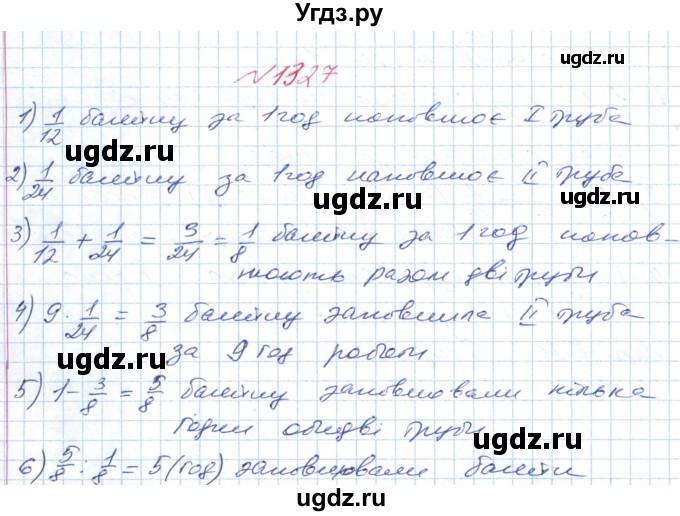 Угдз.ру
№1327
1) 1/12 басейну за 1 год наповнює I труба
2) 1/24 басейну за 1 год наповнює II труба
3) 1/12 + 1/24 = 3/24 = 1/8 басейну за 1 год напов-
нюють разом дві труби
4) 9 · 1/24 = 3/8 басейну заповнила II труба
за 9 год роботи
5) 1 - 3/8 = 5/8 басейну заповнювали кілька
годин обидві труби
6) 5/8 : 1/8 = 5 (год) заповнювали басейн
ugdz.ru
ugdz.ru
ugdz.ru
ugdz.ru
ugdz.ru
ugdz.ru
ugdz.ru
ugdz.ru
ugdz.ru